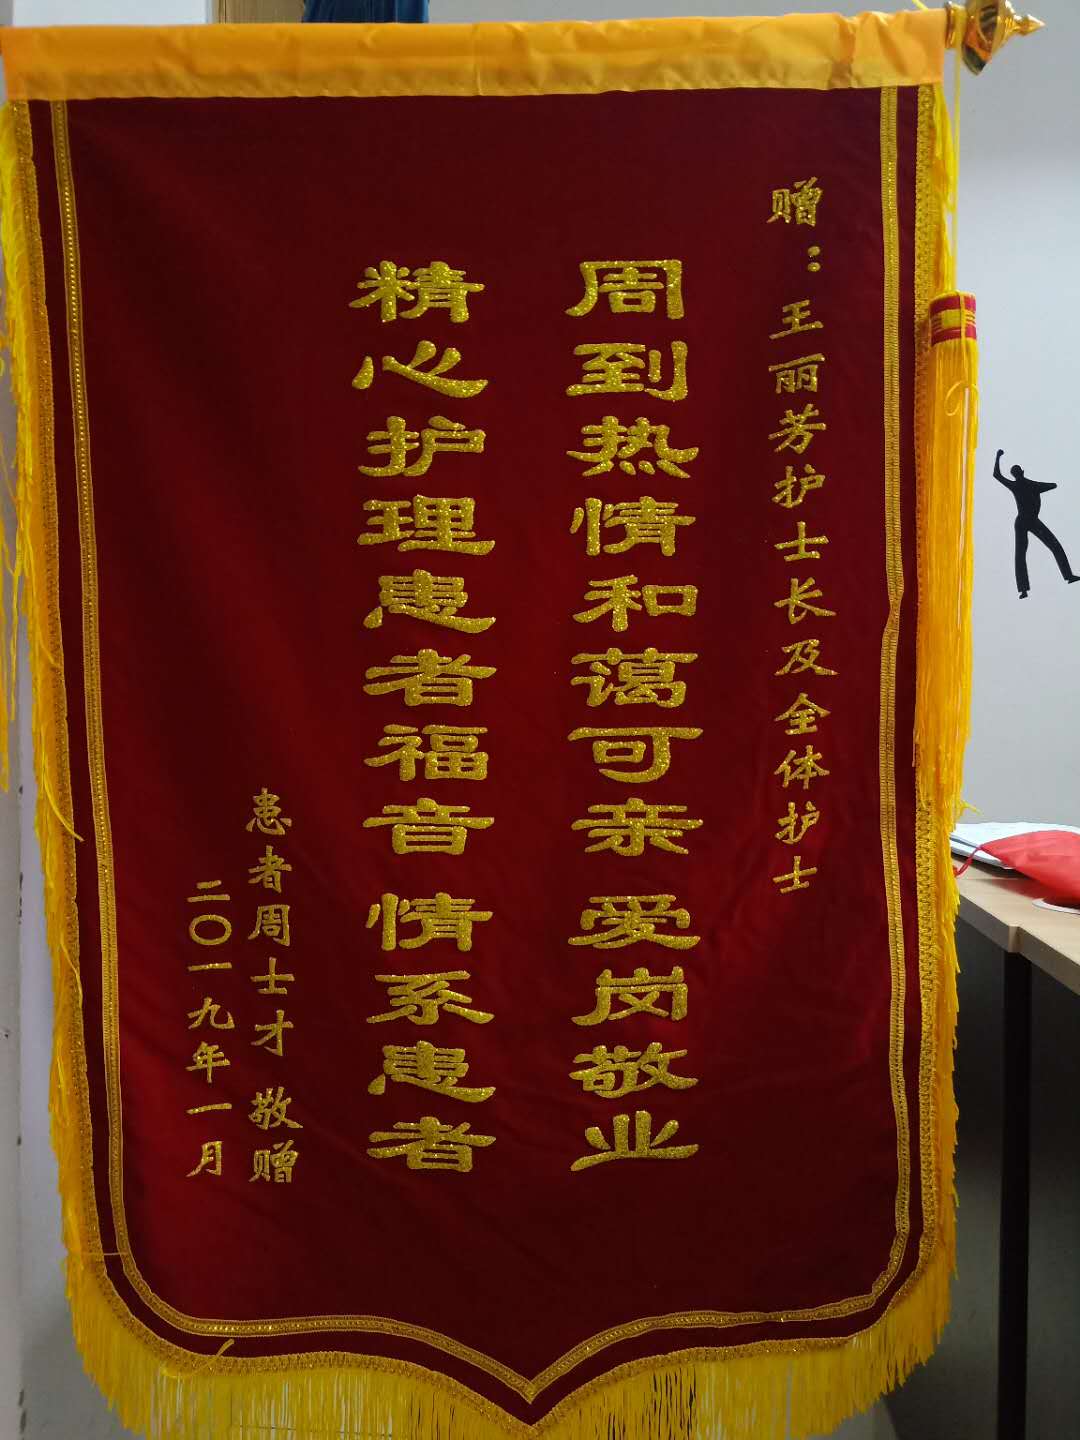 赠：王丽芳护士长及全体护士
周到热情和蔼可亲 爱岗敬业
精心护理患者福音 情系患者
患者周士才 敬赠
二〇一九年一月